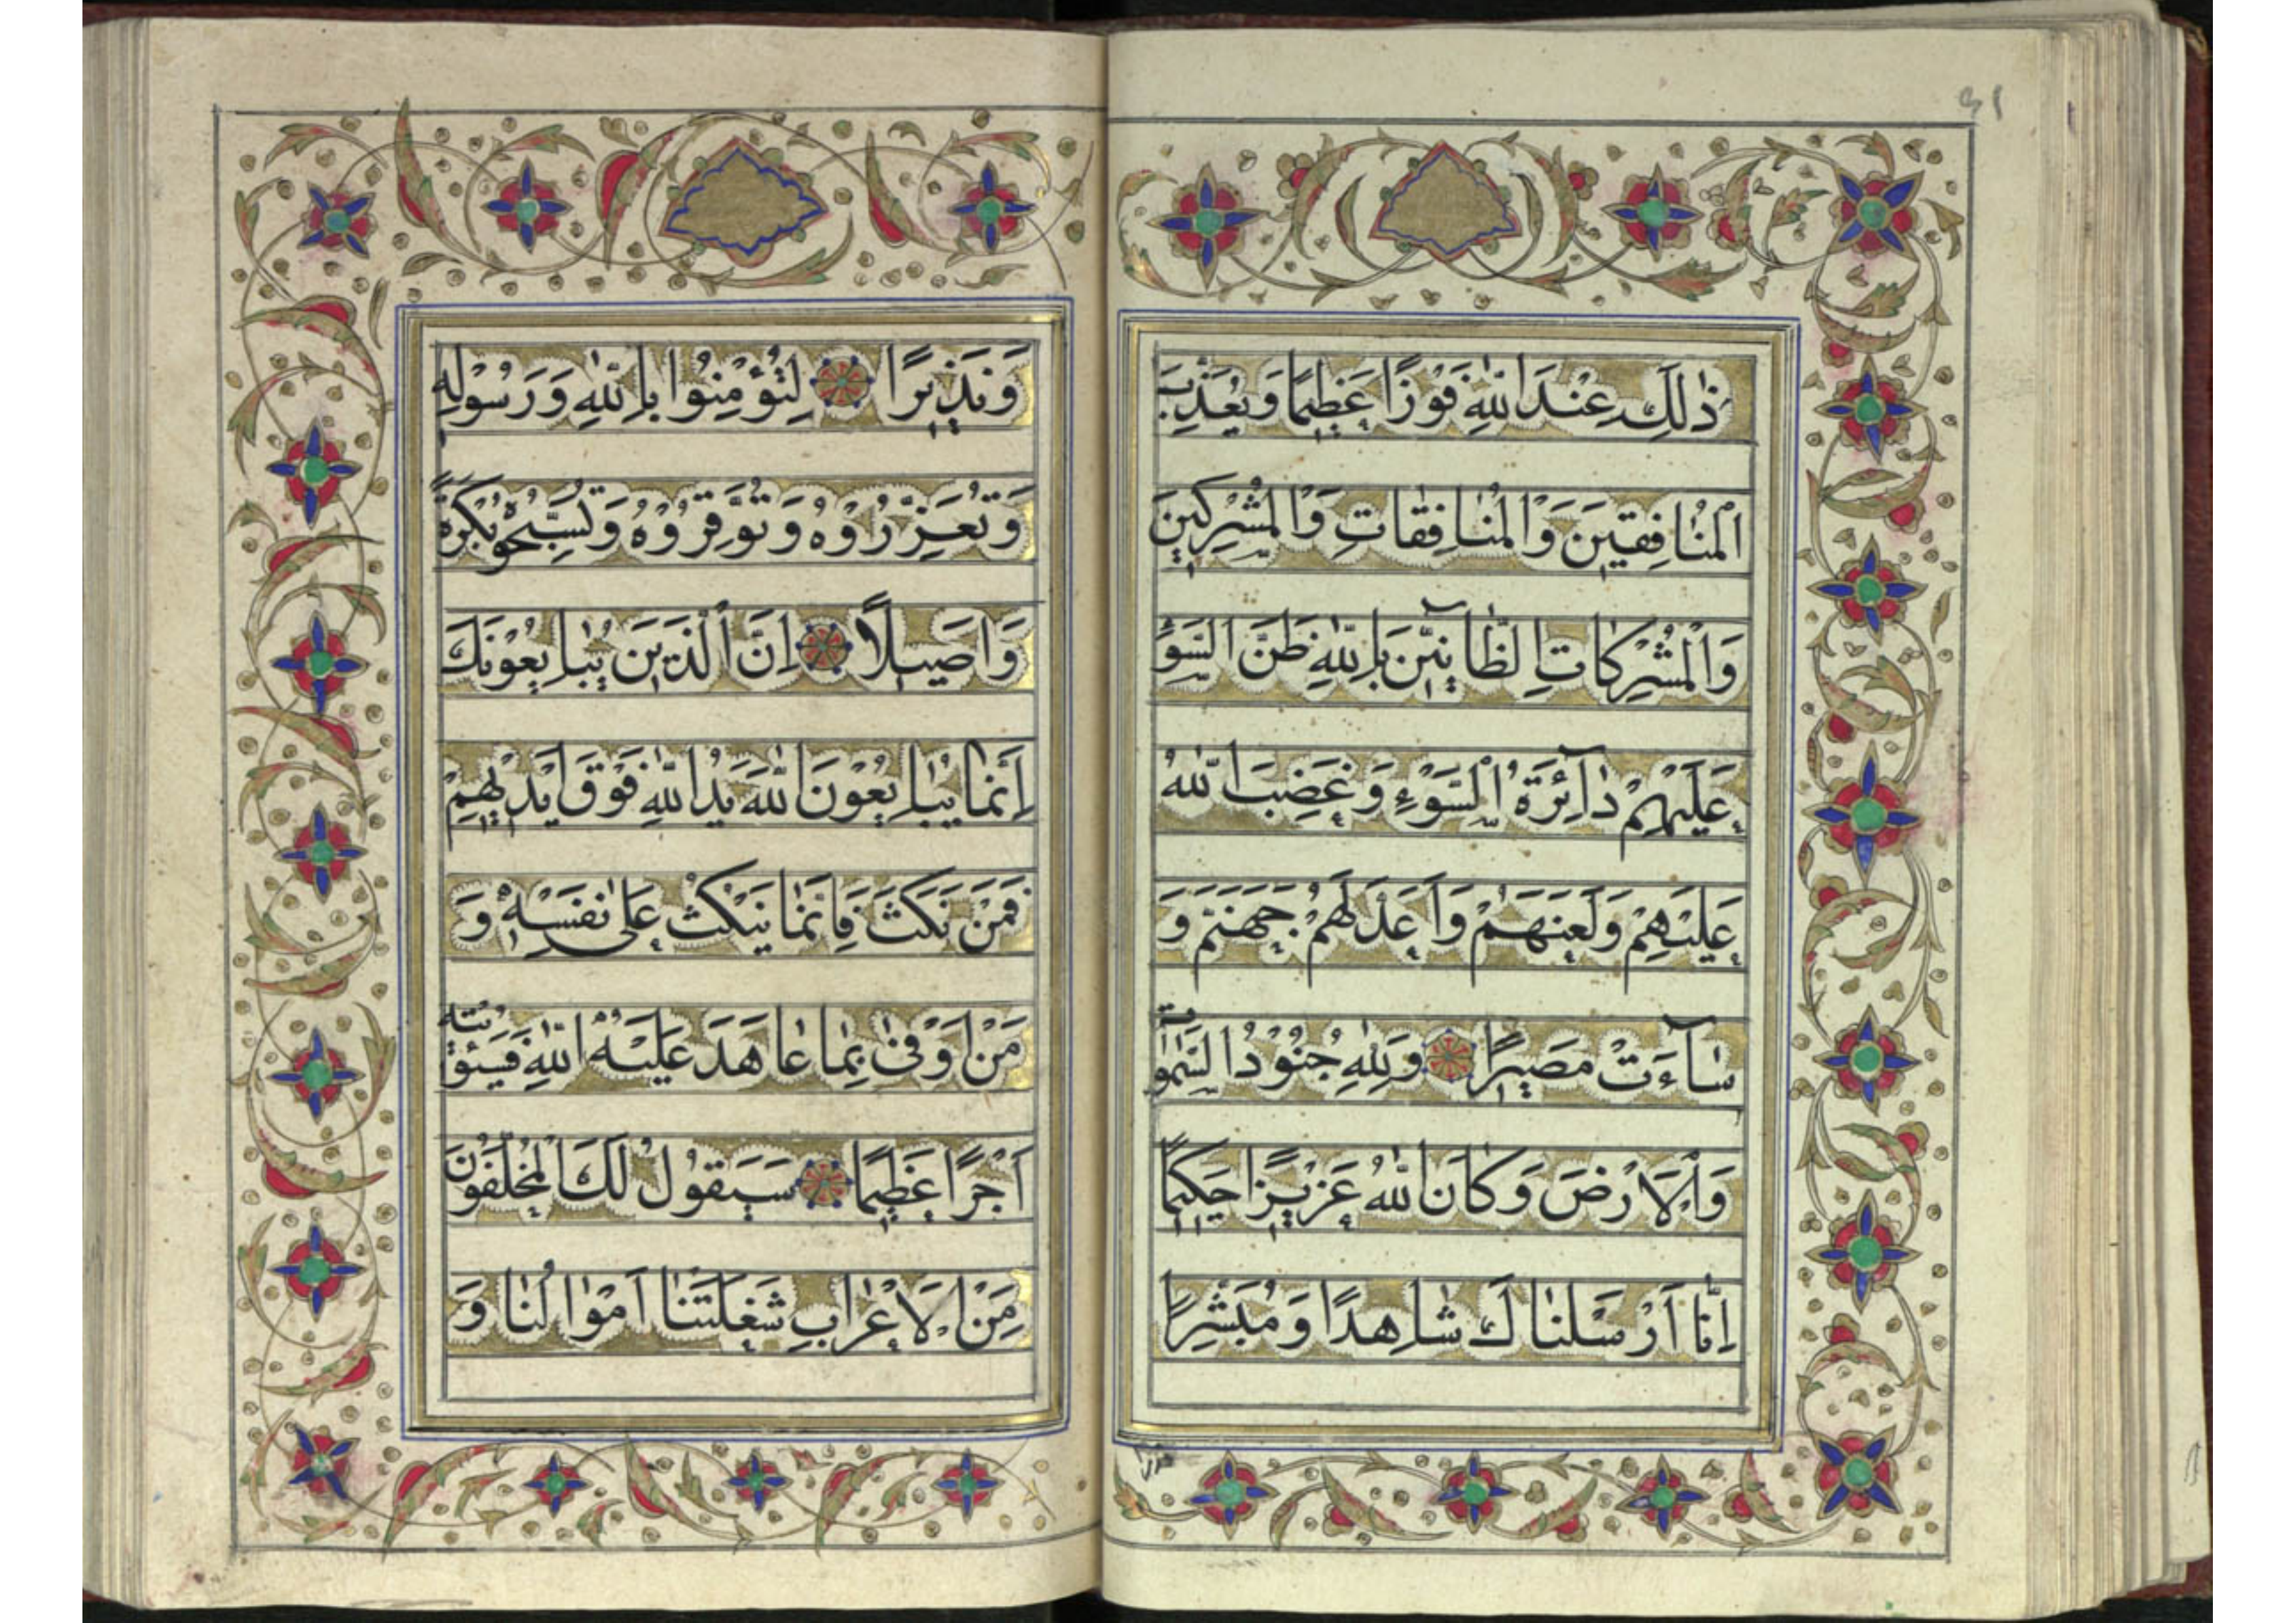 ذٰلِكَ عِنْدَ اللّٰهِ فَوْزًا عَظِيمًا وَيُعَذِّبَ
الْمُنٰافِقِينَ وَالْمُنٰافِقٰاتِ وَالْمُشْرِكِينَ
وَالْمُشْرِكٰاتِ الظّٰانِّينَ بِاللّٰهِ ظَنَّ السَّوْءِ
عَلَيْهِمْ دٰآئِرَةُ السَّوْءِ وَغَضِبَ اللّٰهُ
عَلَيْهِمْ وَلَعَنَهُمْ وَاَعَدَّ لَهُمْ جَهَنَّمَ وَ
سٰآءَتْ مَصِيرًا وَلِلّٰهِ جُنُودُ السَّمٰوٰاتِ
وَالْاَرْضِ وَكَانَ اللّٰهُ عَزِيزًا حَكِيمًا
اِنّٰا اَرْسَلْنٰاكَ شٰاهِدًا وَمُبَشِّرًا
وَنَذِيرًا لِتُؤْمِنُوا بِاللّٰهِ وَرَسُولِهِ
وَتُعَزِّرُوْهُ وَتُوَقِّرُوْهُ وَتُسَبِّحُوهُ بُكْرَةً
وَاَصِيلًا اِنَّ الَّذِينَ يُبٰايِعُونَكَ
اِنَّمٰا يُبٰايِعُونَ اللّٰهَ يَدُ اللّٰهِ فَوْقَ اَيْدِيهِمْ
فَمَنْ نَكَثَ فَاِنَّمٰا يَنْكُثُ عَلٰى نَفْسِهِ وَ
مَنْ اَوْفٰى بِمٰا عٰاهَدَ عَلَيْهُ اللّٰهَ فَسَيُؤْتِيهِ
اَجْرًا عَظِيمًا سَيَقُولُ لَكَ الْمُخَلَّفُونَ
مِنَ الْاَعْرٰابِ شَغَلَتْنٰا اَمْوٰالُنٰا وَ